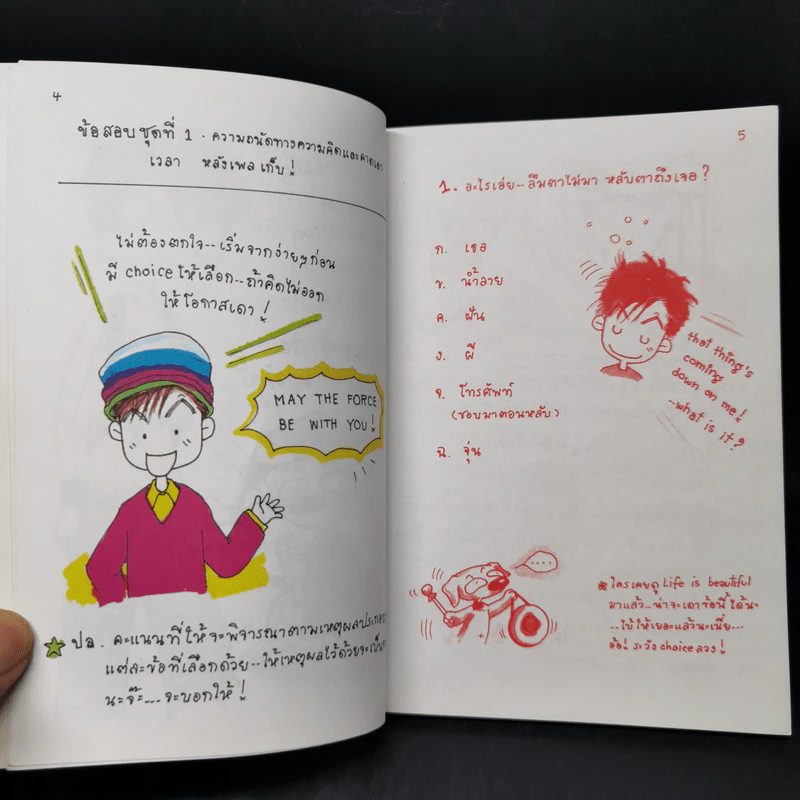 4
ข้อสอบชุดที่ 1 . ความถนัดทางความคิดและคาดเดา
เวลา หลังเพล เก็บ!
ไม่ต้องตกใจ.. เริ่มจากง่ายๆก่อน
มี choice ให้เลือก.. ถ้าคิดไม่ออก
ให้โอกาสเดา!
MAY THE FORCE
BE WITH YOU!
ปล. คะแนนที่ให้จะพิจารณาตามเหตุผลประกอบ
แต่ละข้อที่เลือกด้วย.. ให้เหตุผลไว้ด้วยจะเป็น
นะจ๊ะ... จะบอกให้!
5
1. อะไรเอ่ย.. ลืมตาไม่มา หลับตาถึงเจอ?
ก. เธอ
ข. น้ำลาย
ค. ฝัน
ง. ผี
จ. โทรศัพท์
(ชอบมาตอนหลับ)
ฉ. จุ่น
that thing's
coming
down on me!
...what is it?
....
ใครเคยดู Life is beautiful
มาแล้ว.. น่าจะเดาข้อนี้ได้นะ
..ใบ้ให้เยอะแล้วนะเนี่ย...
อ้อ! ระวัง choice ลวง!